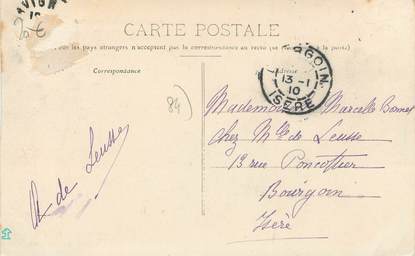 AVIGN
CARTE POSTALE
les pays étrangers n'acceptent pas la correspondance au recto (se
à la poste)
Correspondance
Adresse
GOIN
13-1
10
ISÈRE
84)
Mademoi Marcelle Bonnet
chez Mlle de Leusse
13 rue Poncottier
Bourgoin
Isère
de Leusse